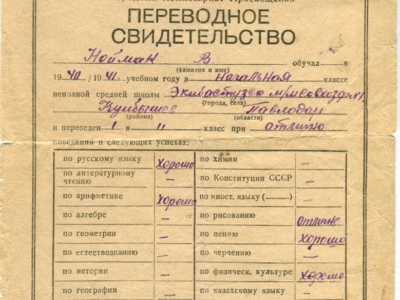 ПЕРЕВОДНОЕ
СВИДЕТЕЛЬСТВО
Нойман В обучал
(фамилия и имя)
в 1940/1941 учебном году в начальная классе
неполной средней школы
(города, села)
Павлодар
(района) (области)
и переведен 1 в 11 класс при отлично
поведении и следующих успехах:
по русскому языку Хорошо
по литературному чтению —
по арифметике Хорошо
по алгебре —
по геометрии —
по естествознанию —
по истории —
по географии
по химии —
по Конституции СССР —
по иност. языку (.........) —
по рисованию Отлично
по пению Хорошо
по черчению —
по физическ. культуре Хорошо
по казахскому языку —